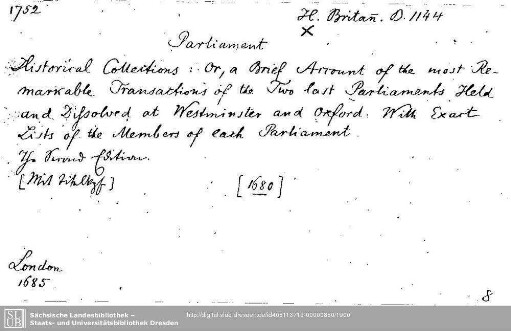 1752
H. Britañ. D. 1144
×
Parliament
Historical Collections : Or, a Brief Account of the most Re-
markable Transactions of the Two last Parliaments Held
and Dissolved at Westminster and Oxford. With Exact
Lists of the Members of each Parliament.
The Second Edition.
[Mit Titelkpf]
[1680]
London
1685.
8
SLUB
Sächsische Landesbibliothek –
Staats- und Universitätsbibliothek Dresden